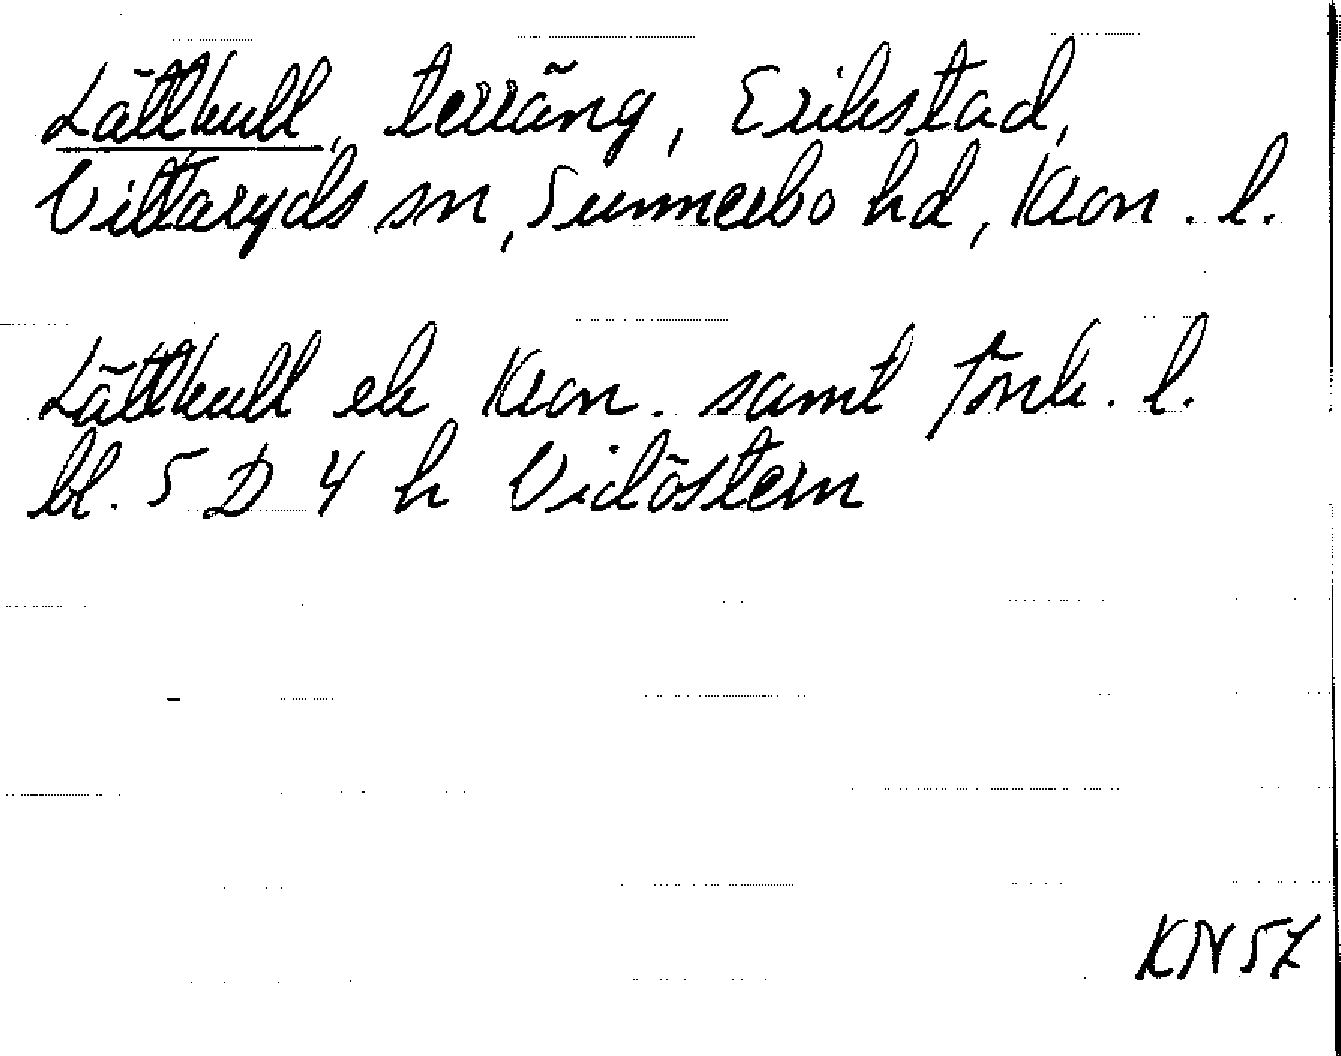 Lättkull, terräng, Erikstad,
Vittaryds sn, Sunnerbo hd, Kron. l.
Lättkull ek Kron. samt Jönk. l.
bl. 5 D 4 h Vidöstern
KN 57